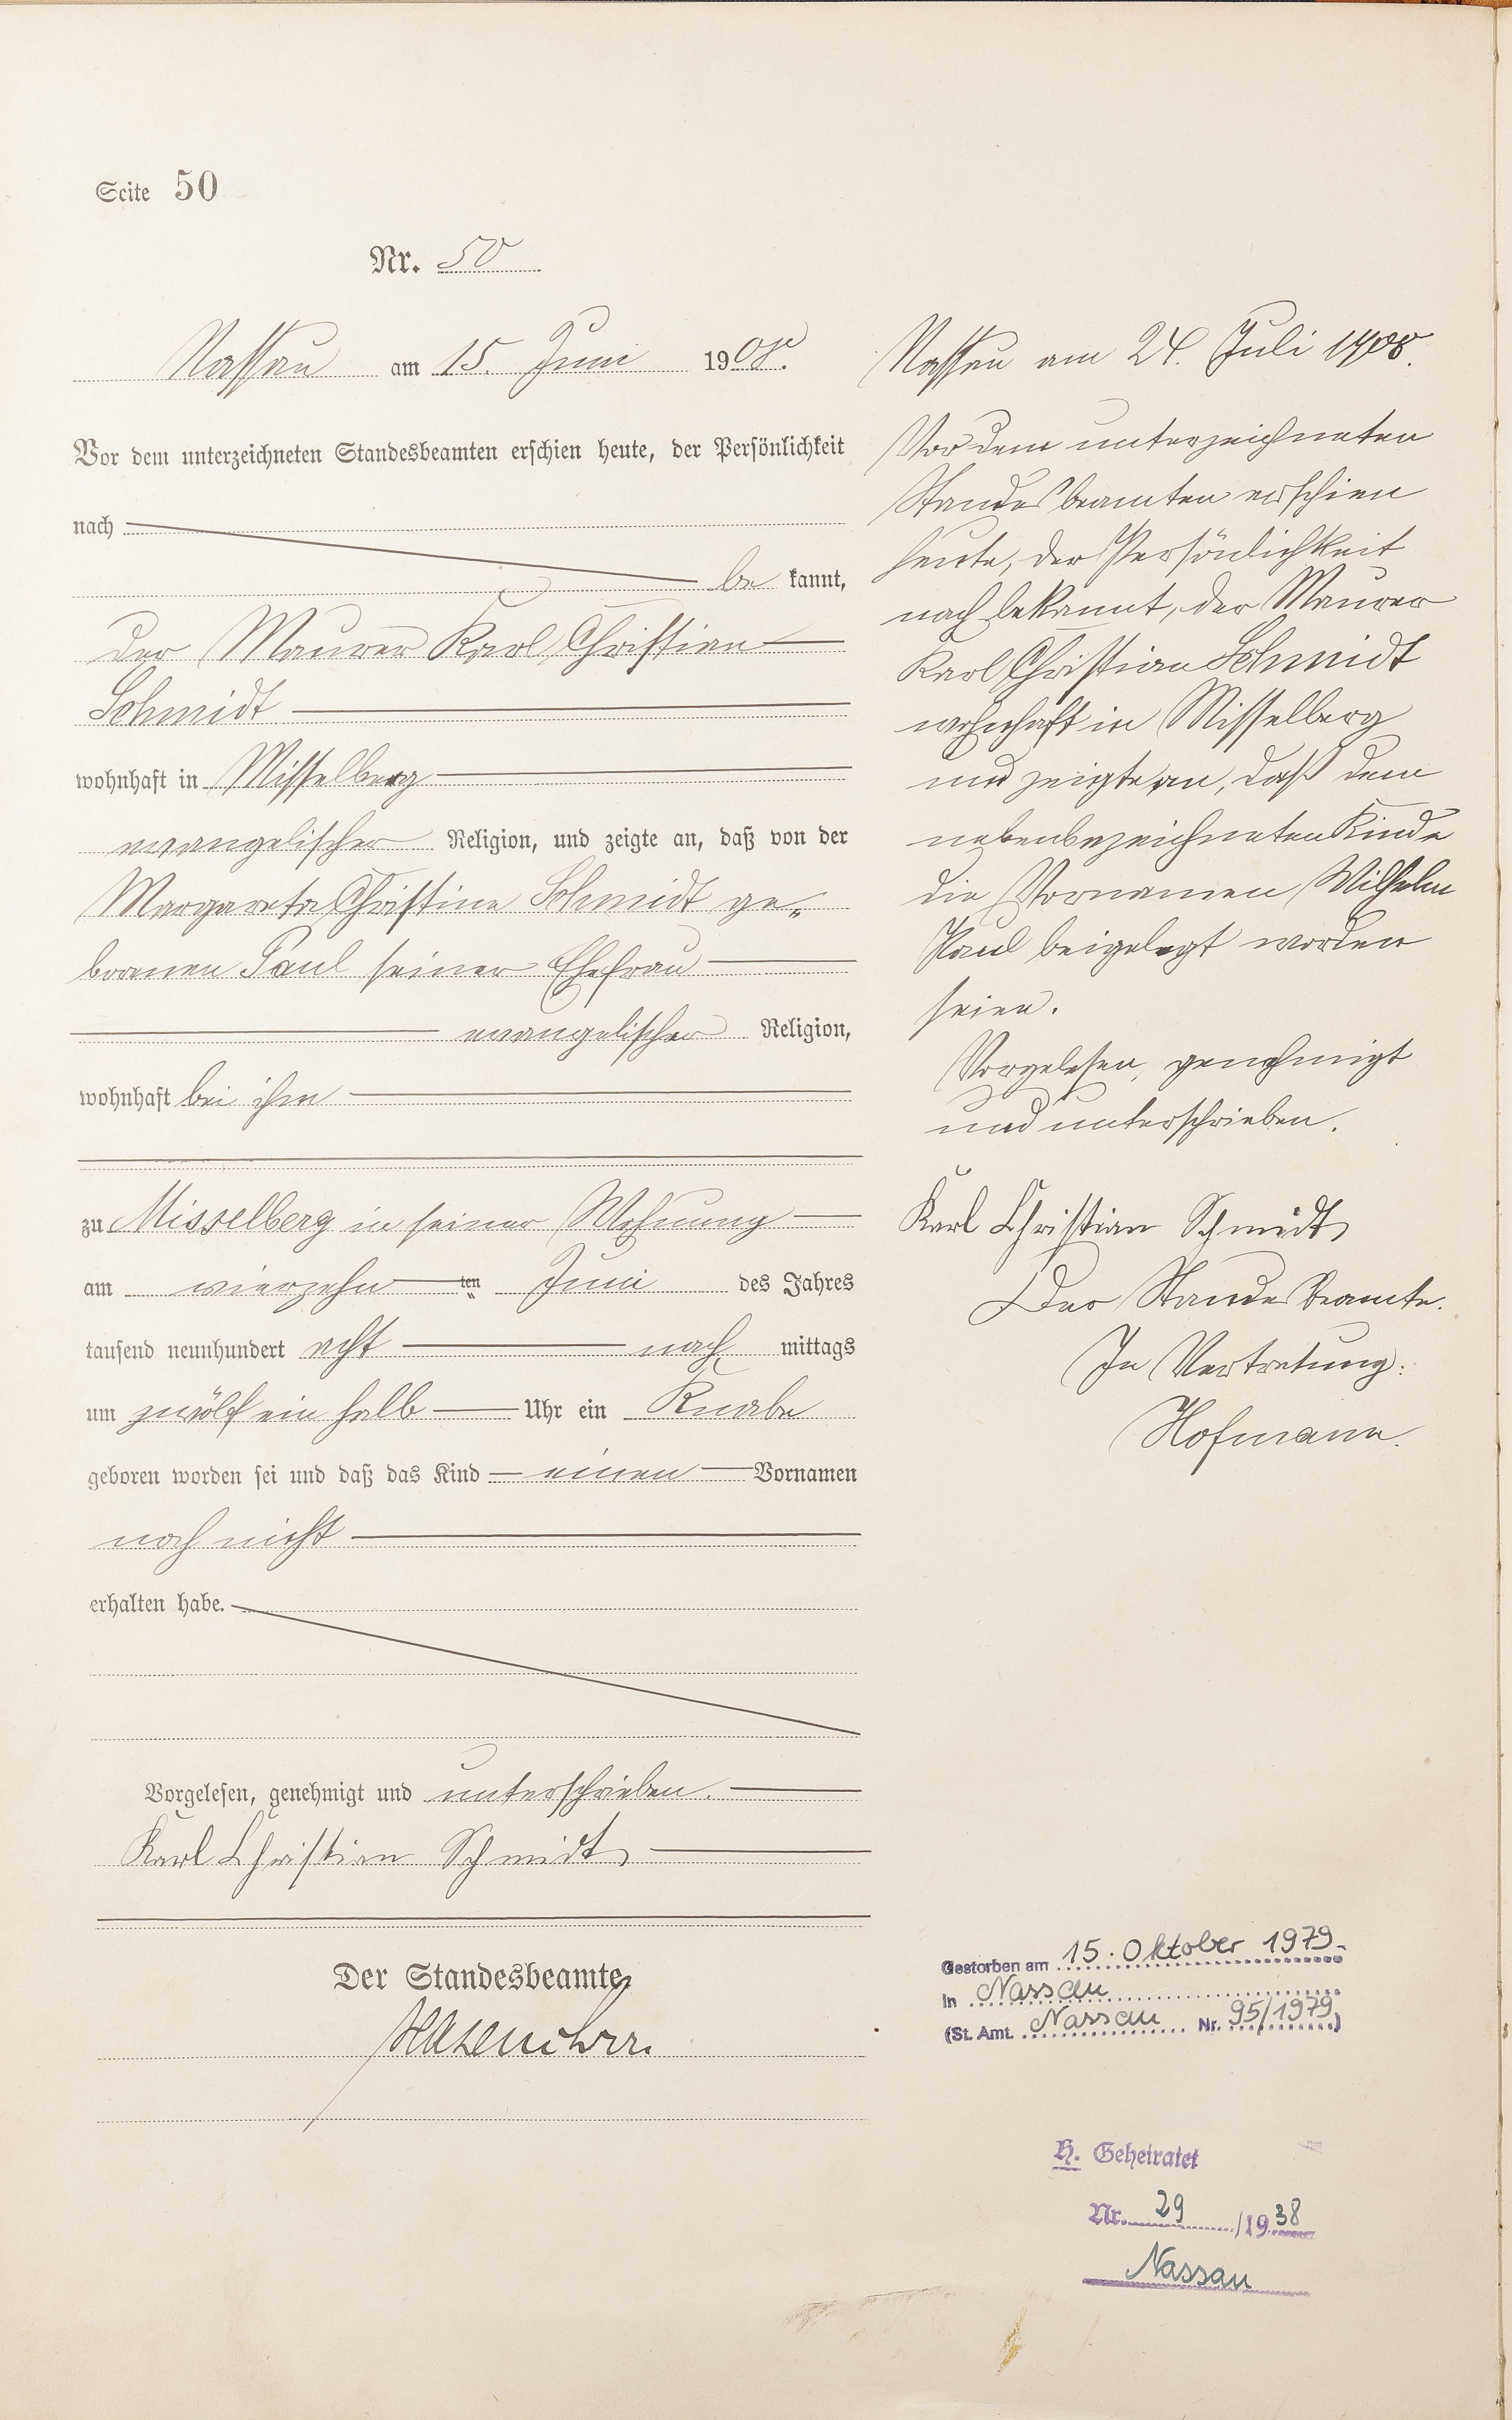 Seite 50
Nr. 50
Nassau am 15. Juni 1908.
Vor dem unterzeichneten Standesbeamten erschien heute, der Persönlichkeit
nach
be kannt,
der Maurer Karl Christian
Schmidt
wohnhaft in Misselberg
evangelischer Religion, und zeigte an, daß von der
Margareta Christine Schmidt ge-
borenen Paul seiner Ehefrau
evangelischer Religion,
wohnhaft bei ihm
zu Misselberg in seiner Wohnung
am vierzehn ten Juni des Jahres
tausend neunhundert acht nach mittags
um zwölf ein halb Uhr ein Knabe
geboren worden sei und daß das Kind einen Vornamen
noch nicht
erhalten habe.
Vorgelesen, genehmigt und unterschrieben.
Karl Christian Schmidt
Der Standesbeamte
Nassau am 24. Juli 1908.
Vor dem unterzeichneten
Standesbeamten erschien
heute, der Persönlichkeit
nach bekannt, der Maurer
Karl Christian Schmidt
wohnhaft in Misselberg
und zeigte an, daß dem
nebenbezeichneten Kinde
die Vornamen Wilhelm
Paul beigelegt worden
seien.
Vorgelesen, genehmigt
und unterschrieben.
Karl Christian Schmidt
Der Standesbeamte.
In Vertretung:
Hofmann.
Gestorben am 15. Oktober 1979
in Nassau
(St. Amt. Nassau Nr. 95/1979)
H. Geheiratet
Nr. 29 /1938
Nassau